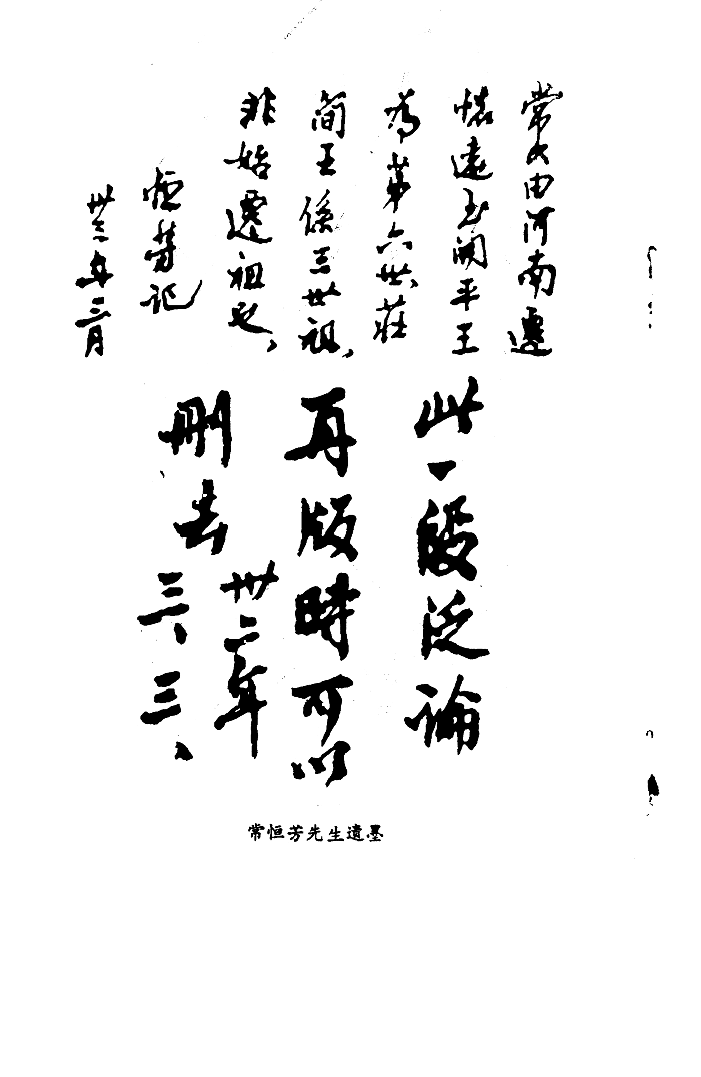 常氏由河南遷
懷遠至開平王
為第六世莊
簡王係三世祖、
非始遷祖也、
恒芳記
卅三年三月
此一段泛論
再版時可以
刪去
卅二年
三、三、
常恒芳先生遺墨